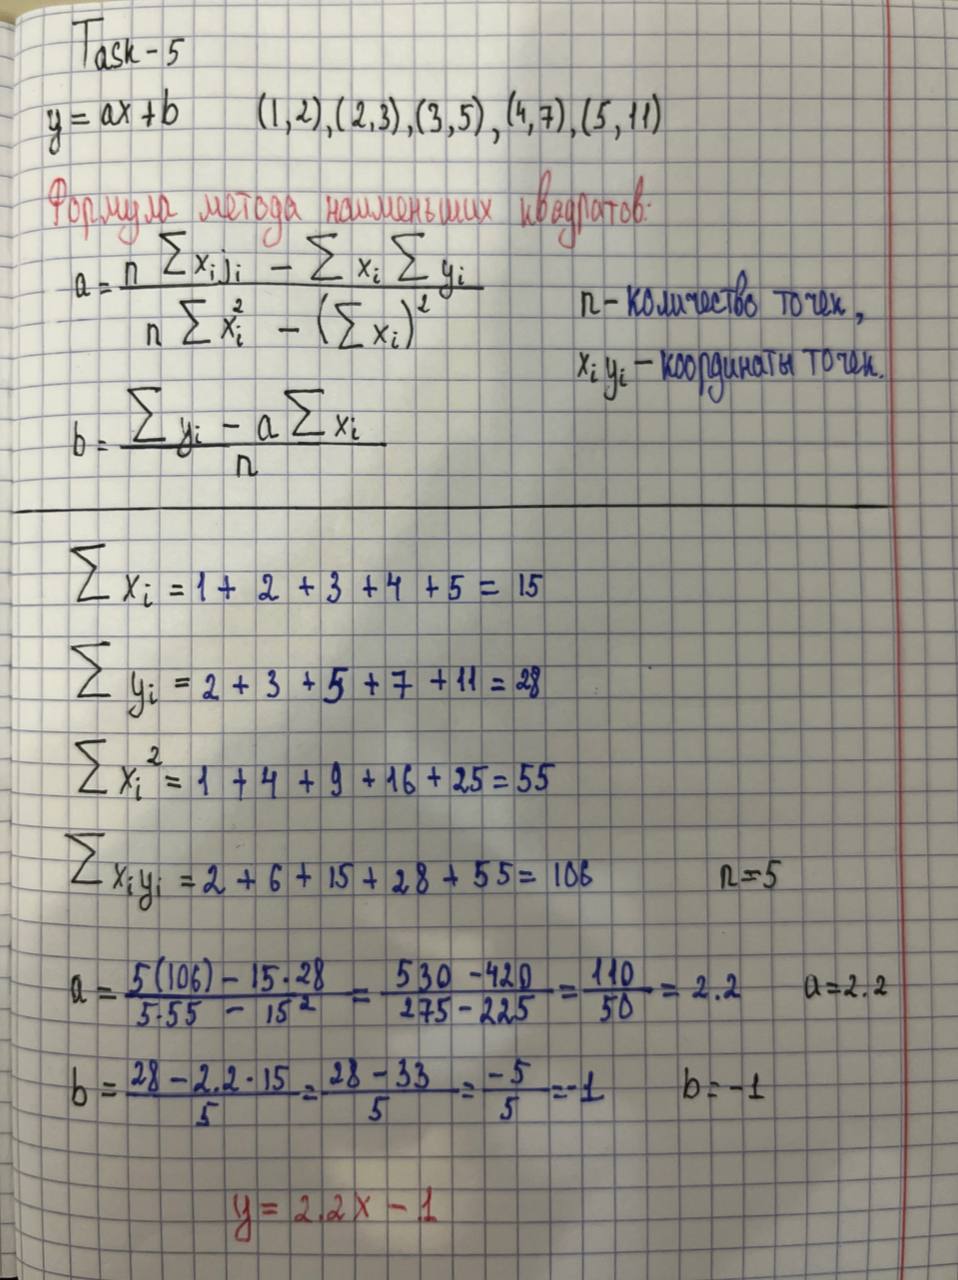 Task-5
y = ax + b (1,2),(2,3),(3,5),(4,7),(5,11)
Формула метода наименьших квадратов:
a = (n ∑xᵢyᵢ − ∑xᵢ ∑yᵢ) / (n ∑xᵢ² − (∑xᵢ)²)
n - количество точек,
xᵢ yᵢ - координаты точек.
b = (∑yᵢ − a ∑xᵢ) / n
∑xᵢ = 1 + 2 + 3 + 4 + 5 = 15
∑yᵢ = 2 + 3 + 5 + 7 + 11 = 28
∑xᵢ² = 1 + 4 + 9 + 16 + 25 = 55
∑xᵢyᵢ = 2 + 6 + 15 + 28 + 55 = 106 n = 5
a = (5(106) − 15·28) / (5·55 − 15²) = (530 − 420) / (275 − 225) = 110/50 = 2.2 a = 2.2
b = (28 − 2.2·15) / 5 = (28 − 33) / 5 = −5/5 = −1 b = −1
y = 2.2x − 1